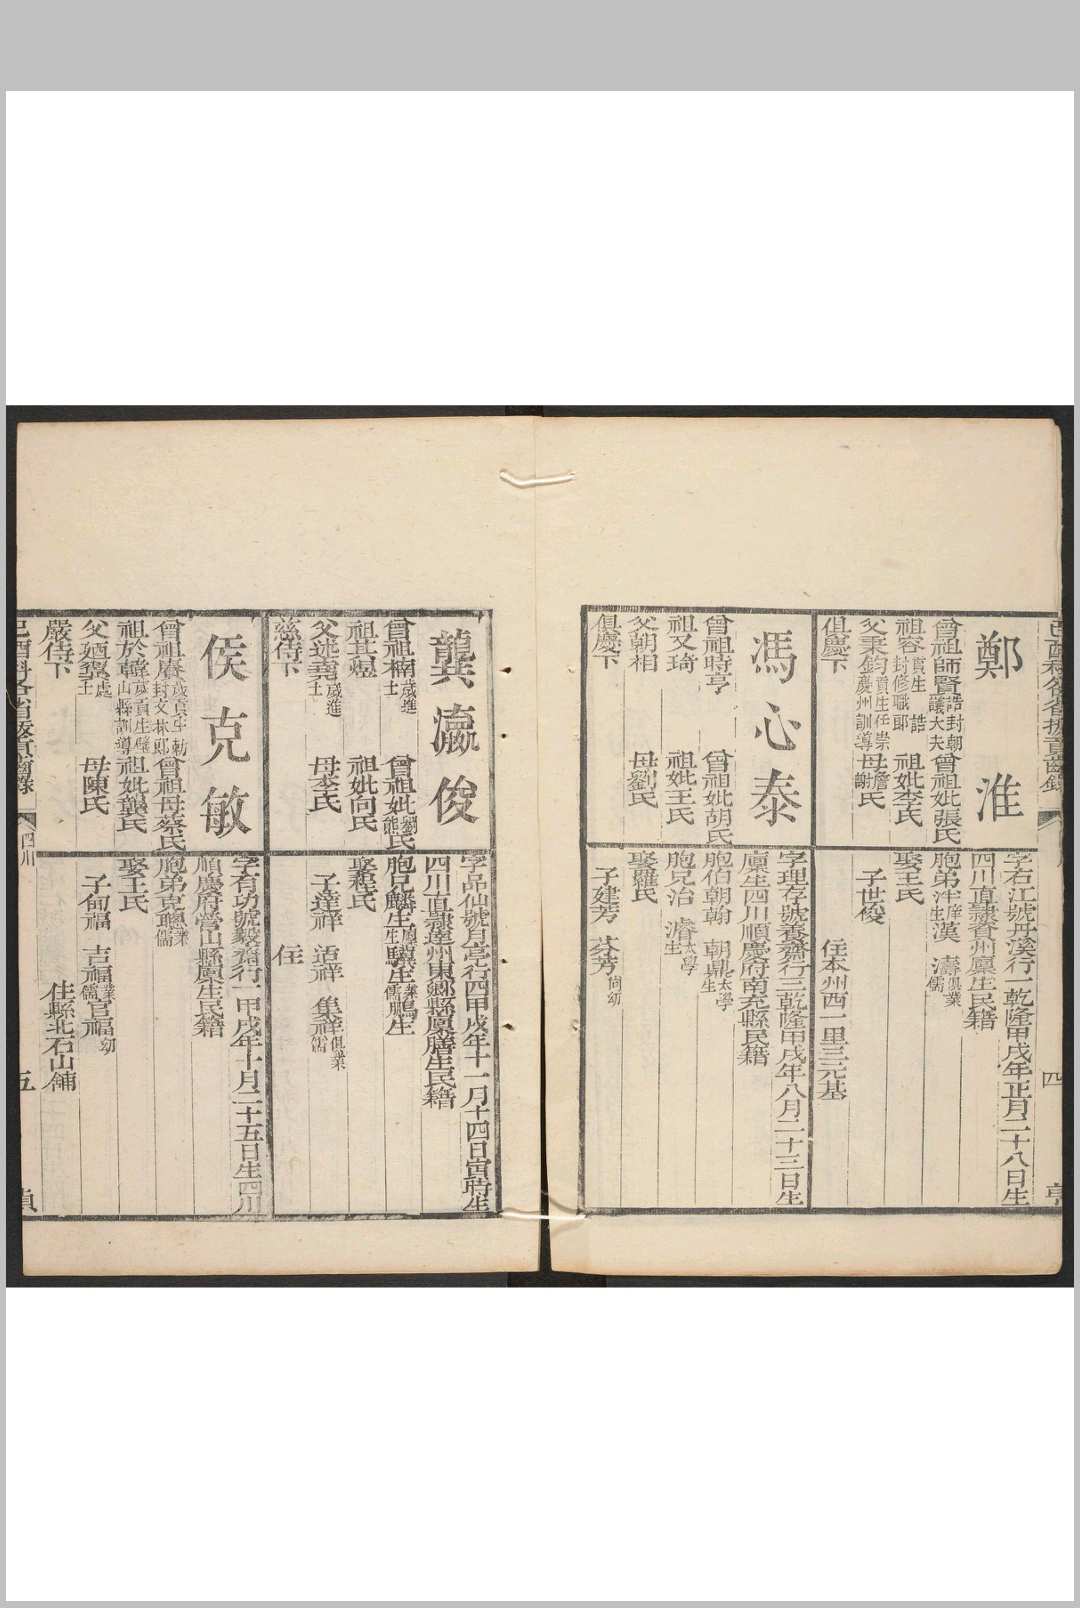 己酉科各省拔貢齒錄
四
亨
鄭淮
曾祖師賢誥封朝議大夫 曾祖妣張氏
祖容貢生誥封修職郎 祖妣李氏
父秉鈞貢生任崇慶州訓導 母詹謝氏
俱慶下
字右江號丹溪行一乾隆甲戌年正月二十八日生
四川直隸資州廩生民籍
胞弟泮庠生 漢 濤俱業儒
娶王氏
子世俊
住本州西一里三元基
馮心泰
曾祖時亨 曾祖妣胡氏
祖又琦 祖妣王氏
父朝相 母劉氏
俱慶下
字理存號養齋行三乾隆甲戌年八月二十三日生
廩生四川順慶府南充縣民籍
胞伯朝翰 朝鼎太學生
胞兄治 濬太學生
娶羅氏
子建芳 芬芳尚幼
龔瀛俊
曾祖楠歲進士 曾祖妣劉熊氏
祖其焜 祖妣向氏
父述堯歲進士 母李氏
慈侍下
字品仙號見亭行四甲戌年十一月十四日寅時生
四川直隸達州東鄉縣廩膳生民籍
胞兄麟生廩生 驥生業儒 鵬生
娶程氏
子達祥 适祥 集祥俱業儒
住
侯克敏
曾祖賡歲貢生勅封文林郎 曾祖母蔡氏
祖於韓歲貢生璧山縣訓導 祖妣龔氏
父廼翼處士 母陳氏
嚴侍下
字有功號毅齋行一甲戌年十月二十五日生四川
順慶府營山縣廩生民籍
胞弟克聰業儒
娶王氏
子甸福 吉福業儒 官福幼
住縣北石山鋪
己酉科各省拔貢齒錄
四川
五
貞